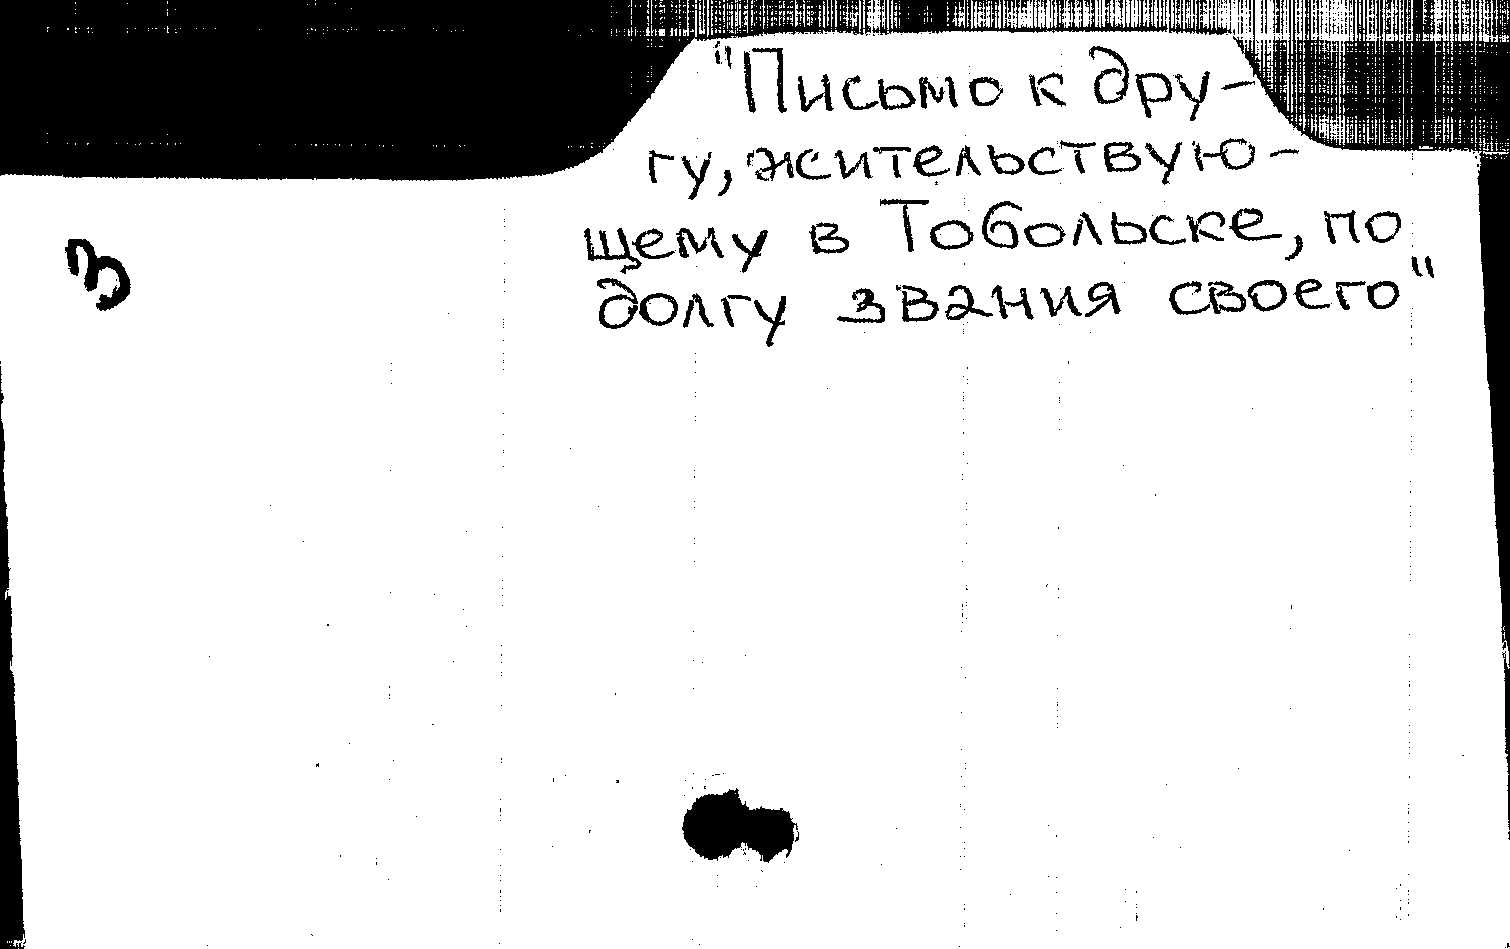 "Письмо к дру-
гу, жительствую-
щему в Тобольске, по
долгу звания своего"